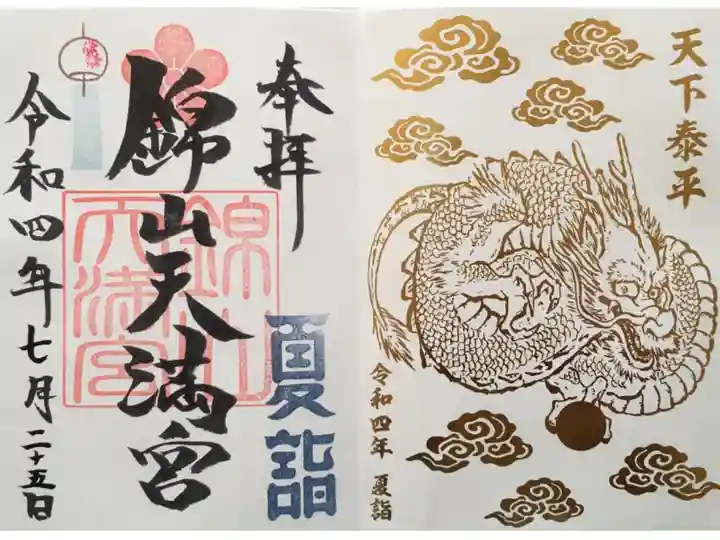 天下泰平
令和四年 夏詣
奉拝
夏詣
錦山天満宮
錦山
天満宮
令和四年七月二十五日